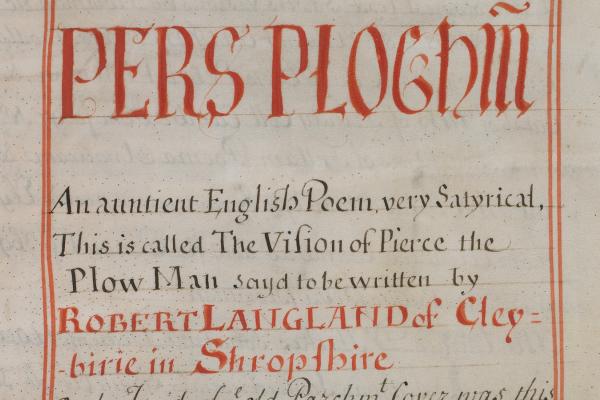 PERS PLOGhm̃
An auntient English Poem, very Satyrical,
This is called The Viſion of Pierce the
Plow Man sayd to be written by
ROBERT LANGLAND of Cley=
-birie in Shropſhire
old Parchmt Cover was this